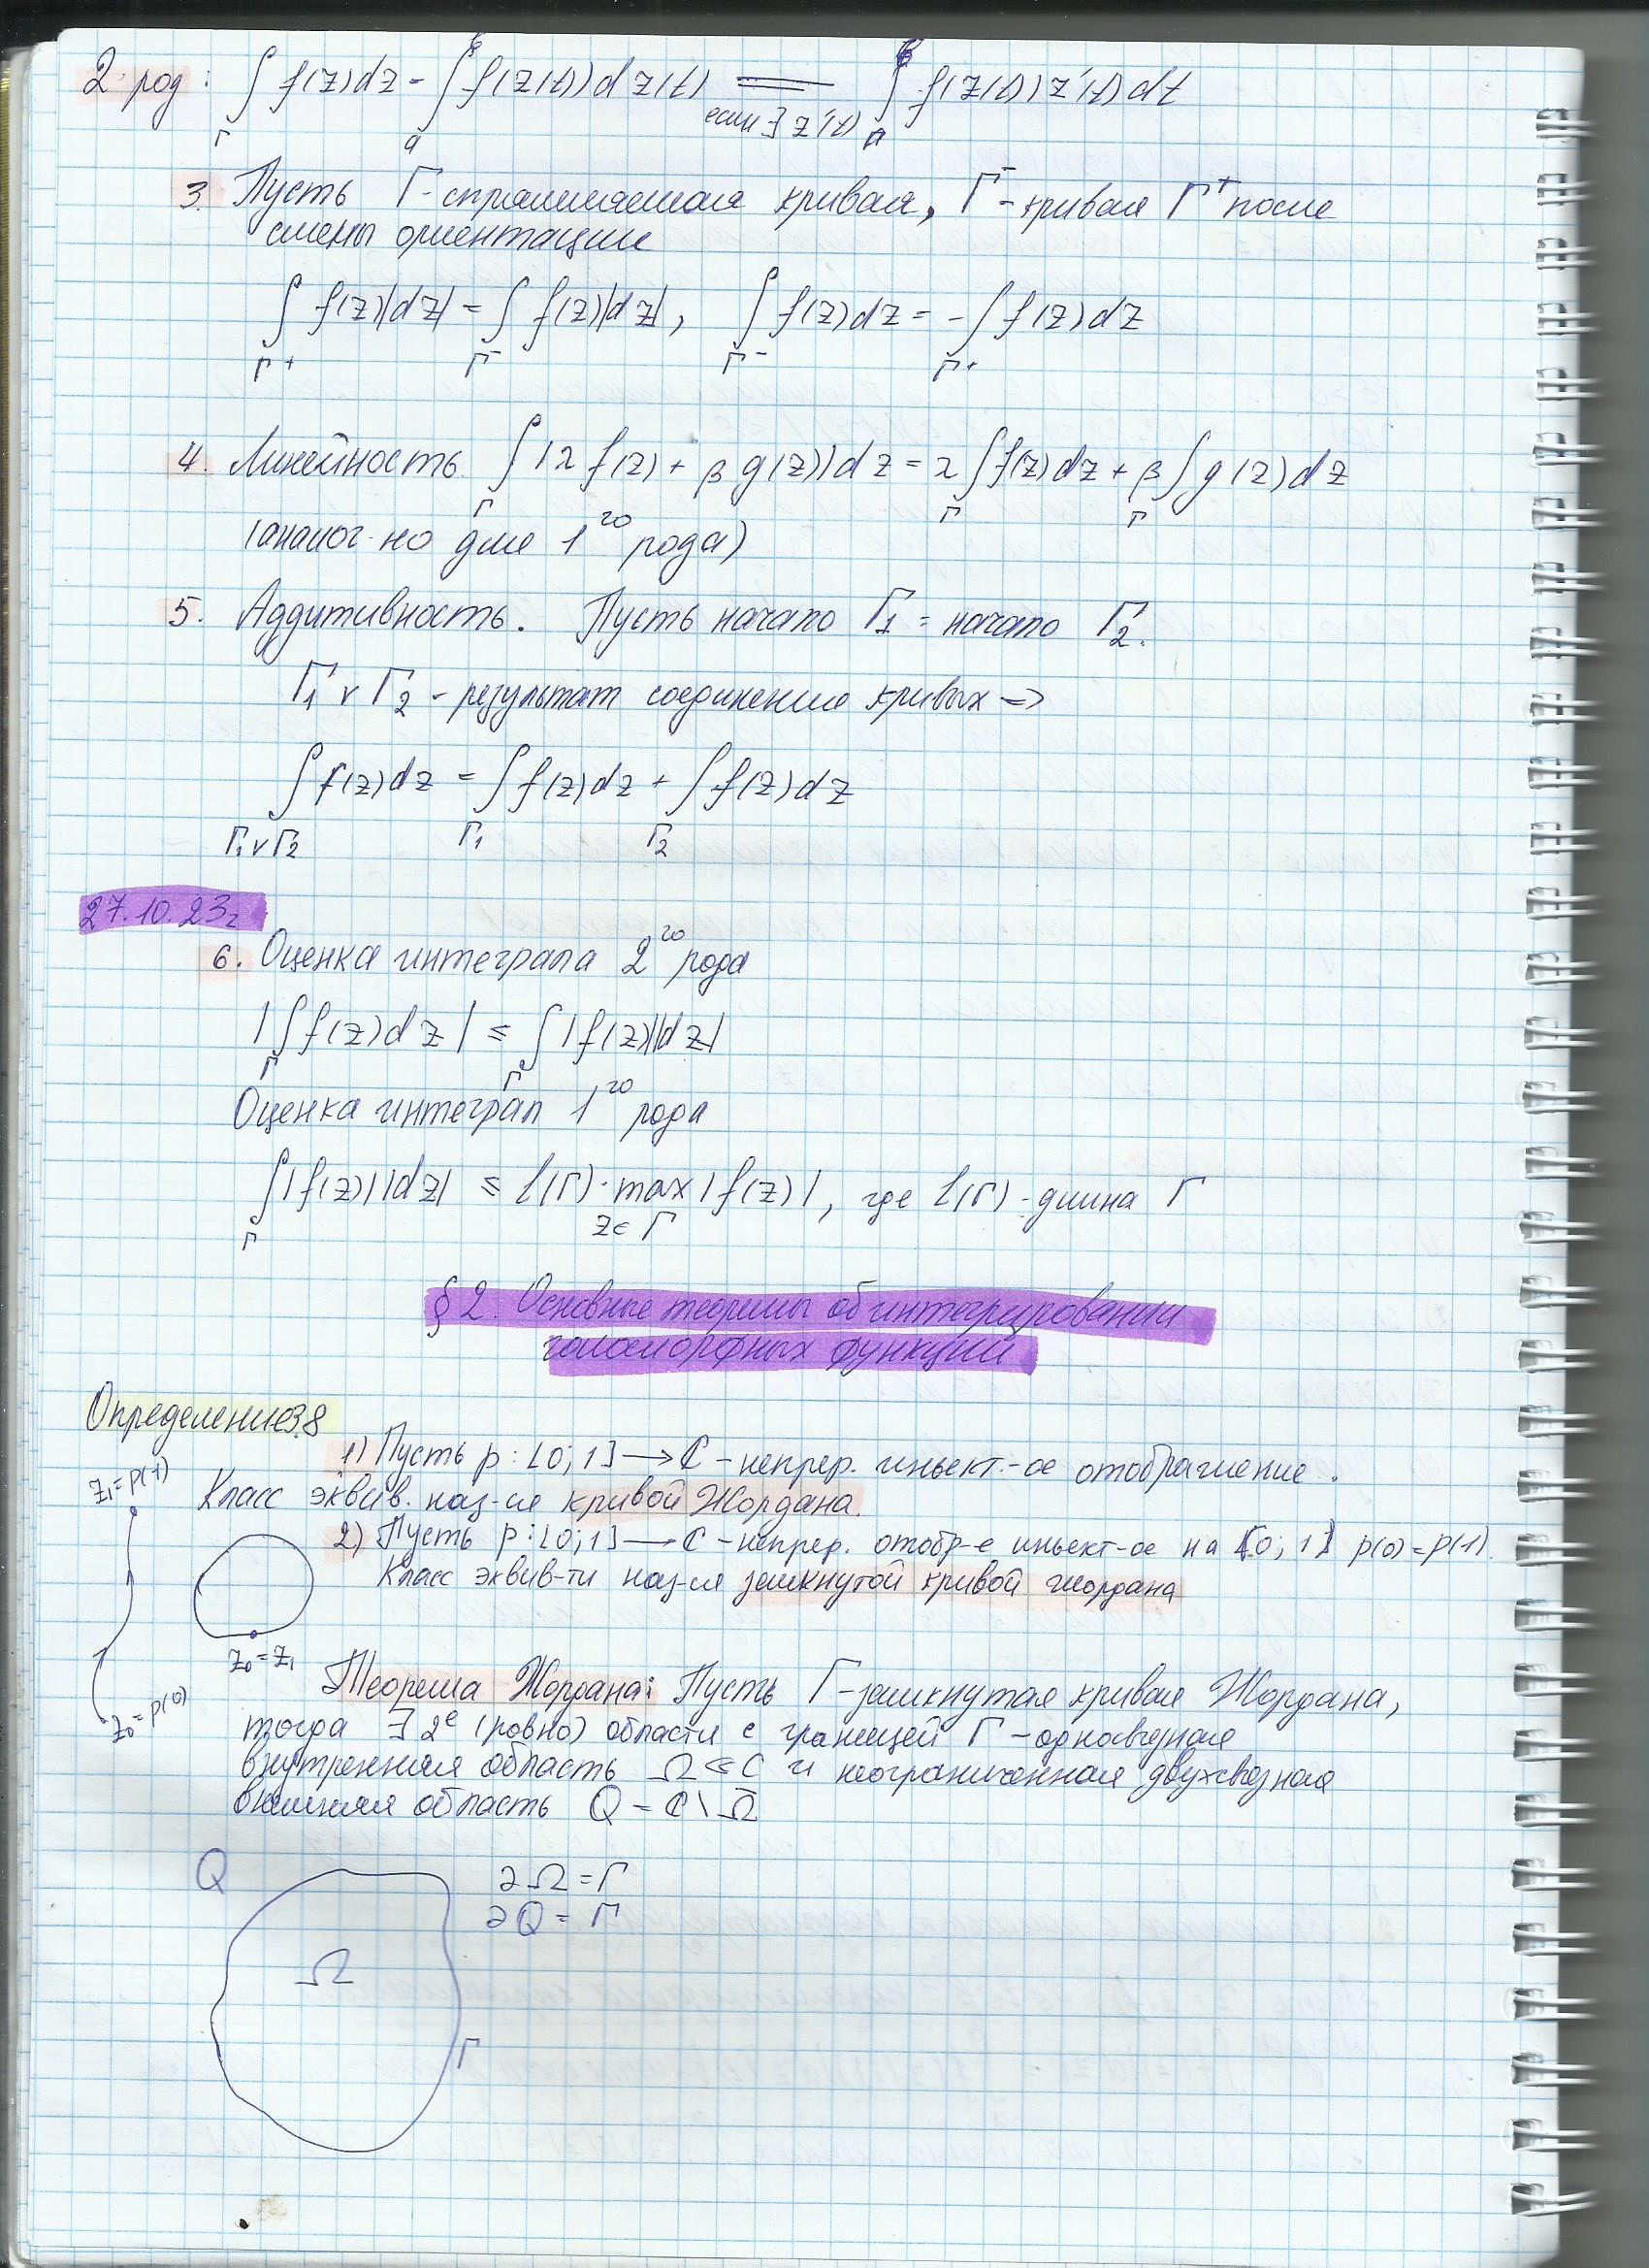 2 род: ∫_Γ f(z)dz = ∫_a^b f(z(t))dz(t) ===(если ∃ z'(t)) ∫_a^b f(z(t))z'(t)dt
3. Пусть Γ-спрямляемая кривая, Γ⁻-кривая Γ⁺ после
смены ориентации
∫_{Γ+} f(z)|dz| = ∫_{Γ-} f(z)|dz|, ∫_{Γ-} f(z)dz = -∫_{Γ+} f(z)dz
4. Линейность. ∫_Γ (α f(z) + β g(z))dz = α∫_Γ f(z)dz + β∫_Γ g(z)dz
(аналог-но для 1го рода)
5. Аддитивность. Пусть начало Γ₁ = начало Γ₂.
Γ₁ ∨ Γ₂ - результат соединения кривых ⇒
∫_{Γ₁∨Γ₂} f(z)dz = ∫_{Γ₁} f(z)dz + ∫_{Γ₂} f(z)dz
27.10.23г
6. Оценка интеграла 2го рода
|∫_Γ f(z)dz| ≤ ∫_Γ |f(z)||dz|
Оценка интеграл 1го рода
∫_Γ |f(z)||dz| ≤ l(Γ)·max_{z∈Γ} |f(z)|, где l(Γ) - длина Γ
§2. Основные теоремы об интегрировании
голоморфных функций
Определение3.8
1) Пусть p: [0;1] → ℂ - непрер. инъект.-ое отображение.
z₁=p(1)
Класс эквив. наз-ся кривой Жордана.
2) Пусть p:[0;1] → ℂ - непрер. отобр-е инъект-ое на [0;1] p(0)=p(1).
Класс эквив-ти наз-ся замкнутой кривой жордана
z₀=z₁
z₀=p(0)
Теорема Жордана: Пусть Γ-замкнутая кривая Жордана,
тогда ∃ 2е (ровно) области с границей Γ - односвязная
внутренняя область Ω ⋐ ℂ и неограниченная двухсвязная
внешняя область Q = ℂ\Ω̄
Q
∂Ω = Γ
∂Q = Γ
Ω
Γ